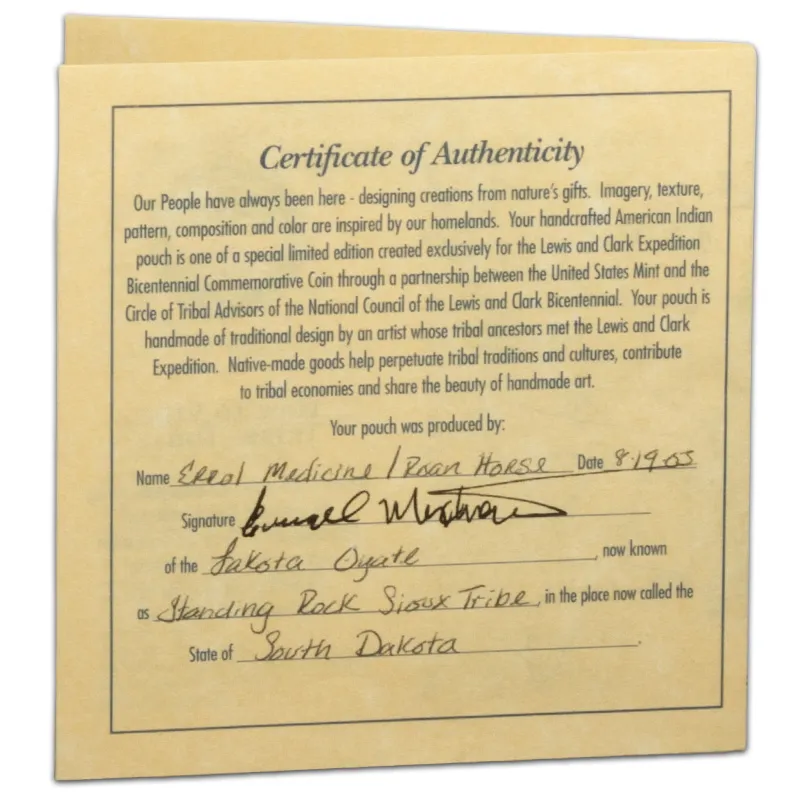 Certificate of Authenticity
Our People have always been here - designing creations from nature's gifts. Imagery, texture,
pattern, composition and color are inspired by our homelands. Your handcrafted American Indian
pouch is one of a special limited edition created exclusively for the Lewis and Clark Expedition
Bicentennial Commemorative Coin through a partnership between the United States Mint and the
Circle of Tribal Advisors of the National Council of the Lewis and Clark Bicentennial. Your pouch is
handmade of traditional design by an artist whose tribal ancestors met the Lewis and Clark
Expedition. Native-made goods help perpetuate tribal traditions and cultures, contribute
to tribal economies and share the beauty of handmade art.
Your pouch was produced by:
Name Errol Medicine / Roan Horse Date 8-19-03
Signature
of the Lakota Oyate, now known
as Standing Rock Sioux Tribe, in the place now called the
State of South Dakota.